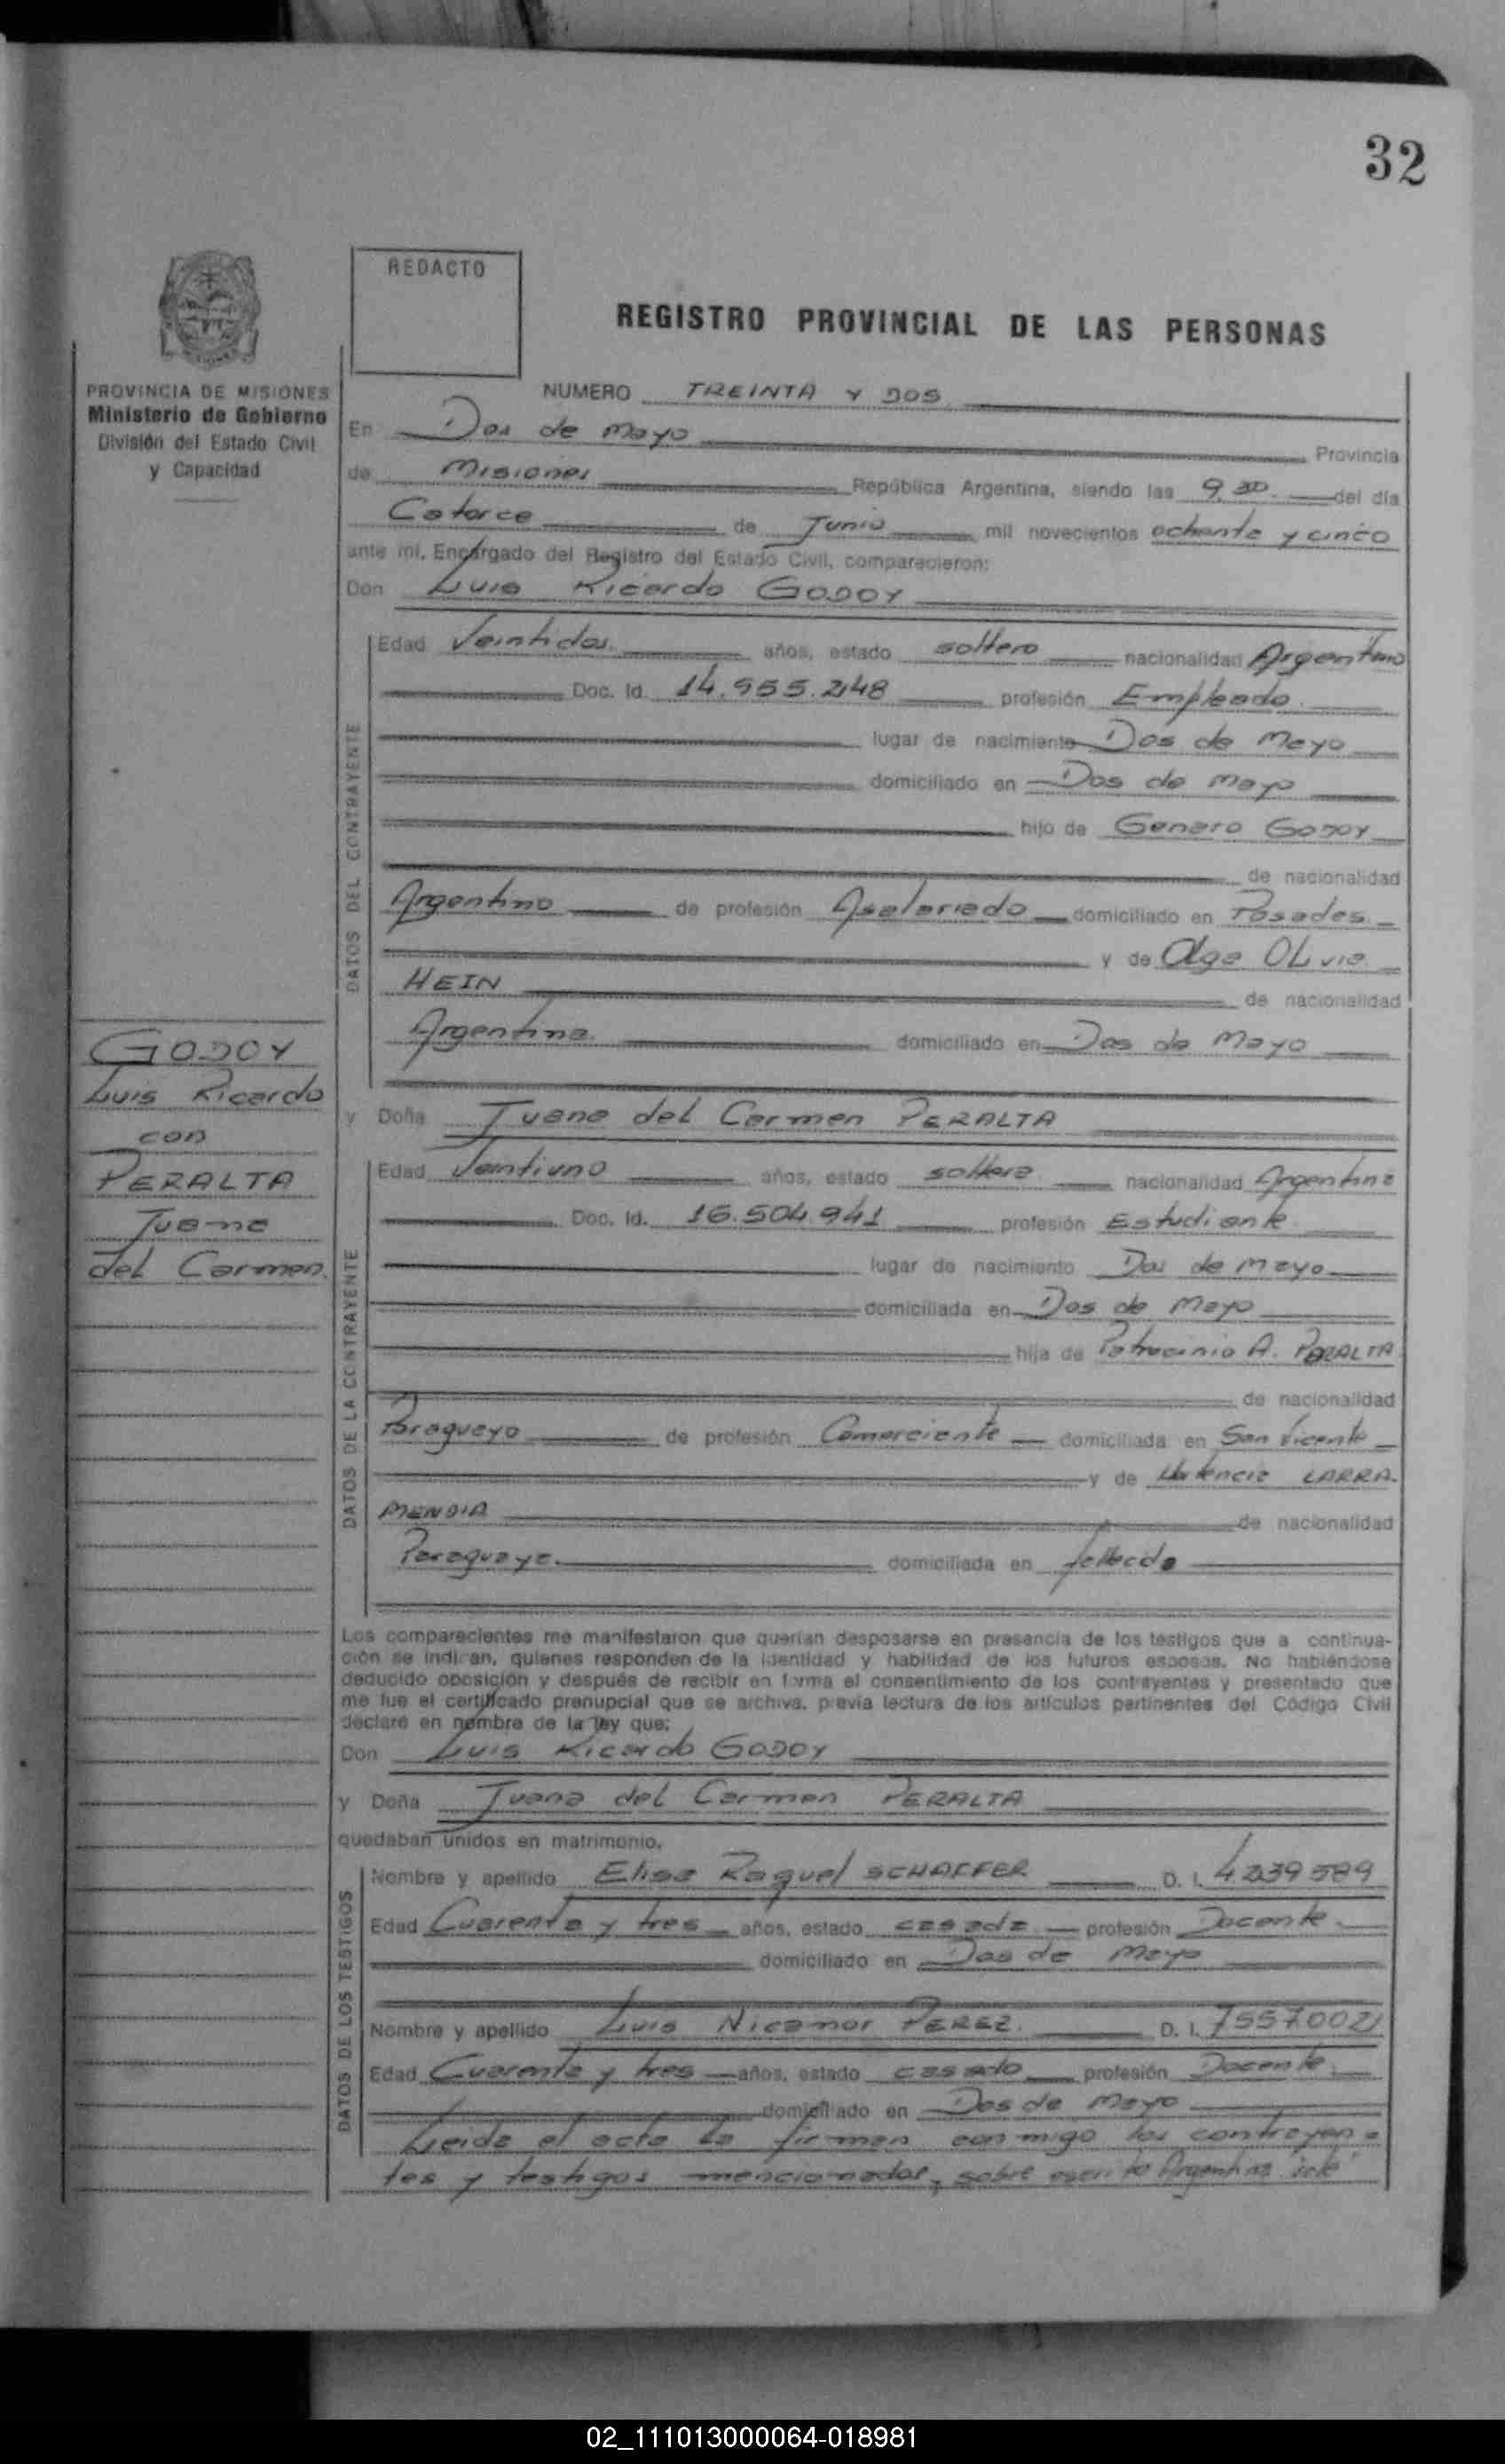 32
REDACTO
REGISTRO PROVINCIAL DE LAS PERSONAS
PROVINCIA DE MISIONES
Ministerio de Gobierno
División del Estado Civil
y Capacidad
NUMERO TREINTA Y DOS
En Dos de Mayo Provincia
de Misiones República Argentina, siendo las 9,30 del día
Catorce de Junio mil novecientos ochenta y cinco
ante mí, Encargado del Registro del Estado Civil, comparecieron:
Don Luis Ricardo GODOY
DATOS DEL CONTRAYENTE
Edad Veintidos años, estado soltero nacionalidad Argentino
Doc. Id. 14.955.248 profesión Empleado
lugar de nacimiento Dos de Mayo
domiciliado en Dos de Mayo
hijo de Genaro GODOY
de nacionalidad
Argentino de profesión Asalariado domiciliado en Posadas
y de Olga OLivia
HEIN de nacionalidad
Argentina domiciliado en Dos de Mayo
GODOY
Luis Ricardo
con
PERALTA
Juana
del Carmen
y Doña Juana del Carmen PERALTA
DATOS DE LA CONTRAYENTE
Edad Veintiuno años, estado soltera nacionalidad Argentina
Doc. Id. 16.504.941 profesión Estudiante
lugar de nacimiento Dos de Mayo
domiciliada en Dos de Mayo
hija de Patrocinio A. PERALTA
de nacionalidad
Paraguayo de profesión Comerciante domiciliada en San Vicente
y de Hortencia LARRA-
MENDIA de nacionalidad
Paraguaya domiciliada en fallecida
Los comparecientes me manifestaron que querían desposarse en presencia de los testigos que a continua-
ción se indican, quienes responden de la identidad y habilidad de los futuros esposos. No habiéndose
deducido oposición y después de recibir en forma el consentimiento de los contrayentes y presentado que
me fue el certificado prenupcial que se archiva, previa lectura de los artículos pertinentes del Código Civil
declaré en nombre de la ley que:
Don Luis Ricardo GODOY
y Doña Juana del Carmen PERALTA
quedaban unidos en matrimonio.
DATOS DE LOS TESTIGOS
Nombre y apellido Elisa Raquel SCHAFFER D. I. 4.239589
Edad Cuarenta y tres años, estado casada profesión Docente
domiciliado en Dos de Mayo
Nombre y apellido Luis Nicanor PEREZ D. I. 7557.002
Edad Cuarenta y tres años, estado casado profesión Docente
domiciliado en Dos de Mayo
Leida el acta la firman conmigo los contrayen-
tes y testigos mencionados, sobre escrito Argentina vale
02_111013000064-018981